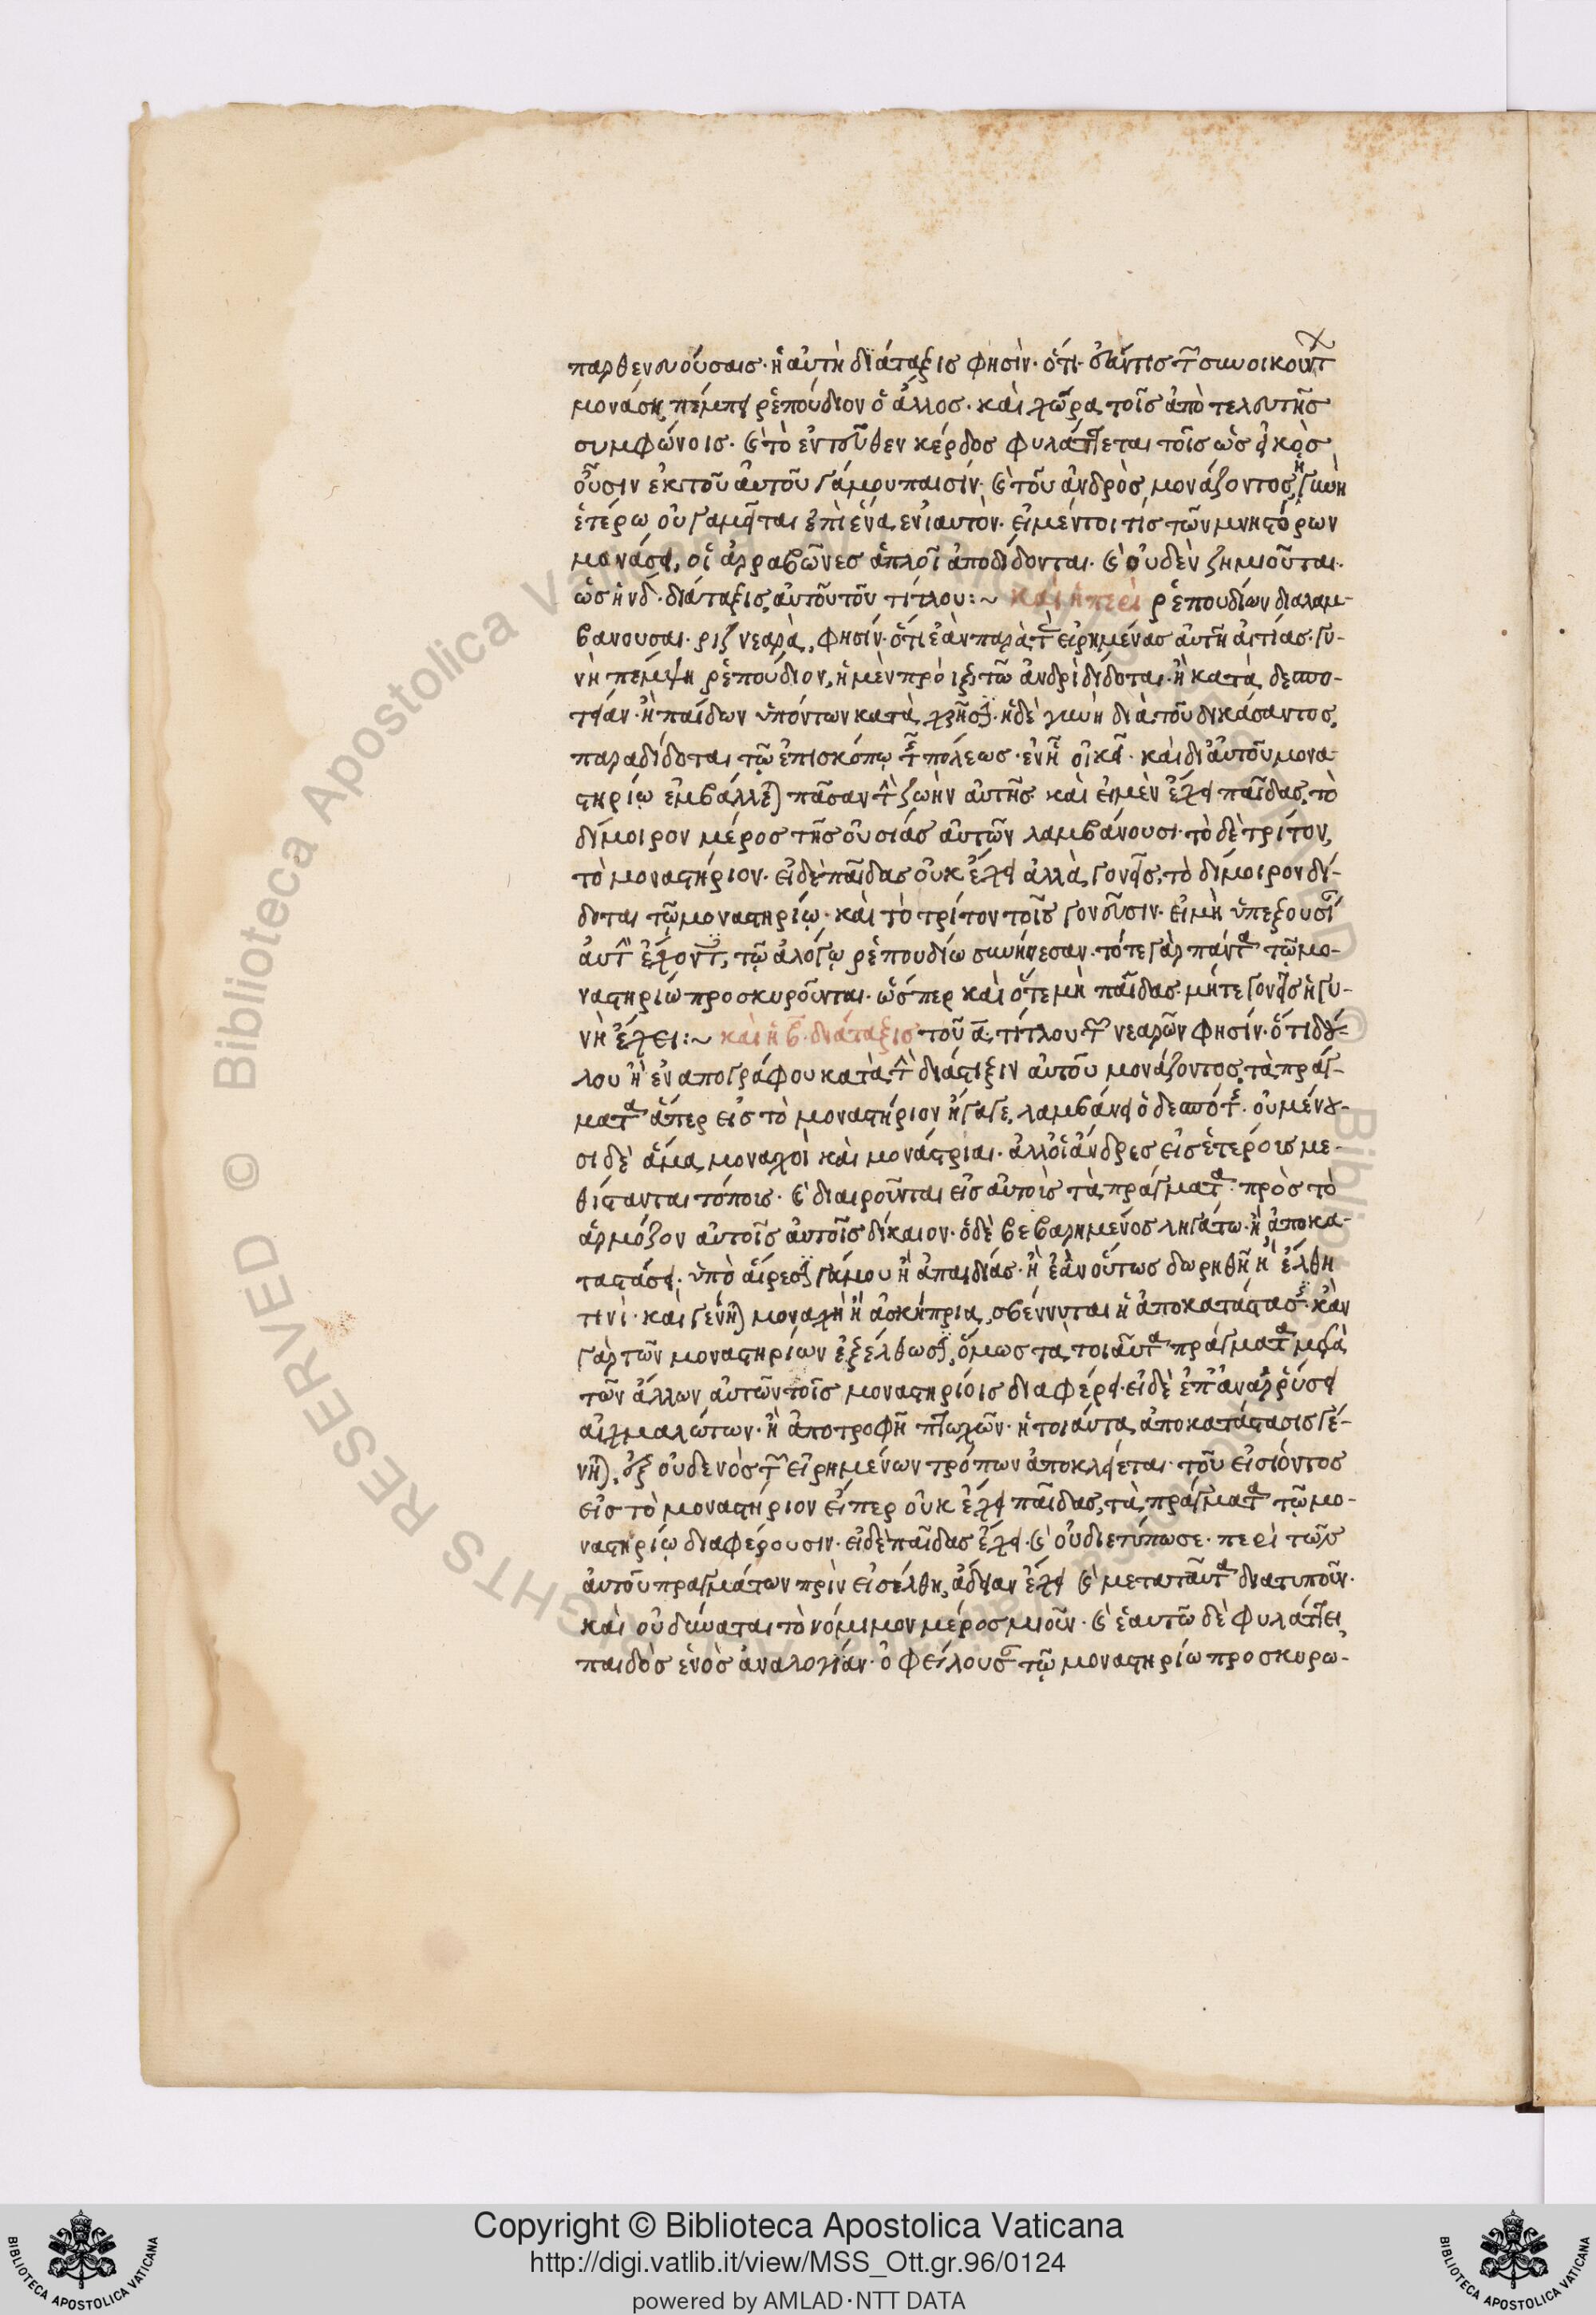 παρθενευούσαις· ἡ αὐτὴ διάταξις φησίν· ὅτι ἐάν τις τῶν συνοικούντων
μονάσῃ πέμπει ῥεπούδιον ὁ ἄλλος· καὶ χώρα τοῖς ἀπὸ τελευτῆς
συμφώνοις· καὶ τὸ ἐντεῦθεν κέρδος φυλάττεται τοῖς ὡς εἰκὸς
οὖσιν ἐκ τοῦ αὐτοῦ γάμου παισίν· καὶ τοῦ ἀνδρὸς μονάζοντος, ἡ γυνὴ
ἑτέρω οὐ γαμεῖται ἐπὶ ἕνα ἐνιαυτόν· εἰ μέντοι τίς τῶν μνηστόρων
μονάσει, οἱ ἀρραβῶνες ἁπλοῖ ἀποδίδονται· καὶ οὐδὲν ζημιοῦται·
ὡς ἡ νδ· διάταξις, αὐτοῦ τοῦ τίτλου:~ καὶ ἡ περὶ ῥεπουδίων διαλαμ-
βανουσαι· ριζ νεαρὰ, φησίν· ὅτι ἐὰν παρὰ τὰς εἰρημένας αὐτῆ αἰτίας· γυ-
νὴ πέμψη ῥεπούδιον, ἡ μὲν προὶξ τῶ ἀνδρὶ δίδοται· ἢ κατὰ δεσπο-
τείαν· ἢ παίδων ὑπόντων κατὰ χρῆσιν· ἡ δὲ γυνὴ διὰ τοῦ δικάσαντος,
παραδίδοται τῷ ἐπισκόπῳ τῆς πόλεως· ἐν ᾗ οἰκεῖ· καὶ δι' αὐτοῦ μονα-
στηρίῳ ἐμβάλλεται πᾶσαν τὴν ζωὴν αὐτῆς· καὶ εἰ μὲν ἔχει παῖδας, τὸ
δίμοιρον μέρος τῆς οὐσίας αὐτῶν λαμβάνουσι· τὸ δὲ τρίτον,
τὸ μοναστήριον· εἰ δὲ παῖδας οὐκ ἔχει ἀλλὰ γονεῖς, τὸ δίμοιρον δί-
δοται τῷ μοναστηρίῳ· καὶ τὸ τρίτον τοῖς γονεῦσιν· εἰ μὴ ὑπεξουσίαν
αὐτὴν ἔχοντες, τῷ ἀλόγῳ ῥεπουδίω συνήνεσαν· τότε γὰρ πάντα τῷ μο-
ναστηρίω προσκυροῦνται· ὥσπερ καὶ ὅτε μὴ παῖδας· μήτε γονεῖς ἡ γυ-
νὴ ἔχει:~ καὶ ἡ β· διάταξις τοῦ α· τίτλου τῶν νεαρῶν φησίν· ὅτι δού-
λου ἢ ἐναπογράφου κατὰ τὴν διάταξιν αὐτοῦ μονάζοντος, τὰ πράγ-
ματα ἅπερ εἰς τὸ μοναστήριον ἤγαγε, λαμβάνει ὁ δεσπότης· οὐ μένου-
σι δὲ ἅμα μοναχοὶ καὶ μονάστριαι· ἀλλ' οἱ ἄνδρες εἰς ἑτέροις με-
θίστανται τόποις· καὶ διαιροῦνται εἰς αὐτοὺς τὰ πράγματα· πρὸς τὸ
ἁρμόζον αὐτοῖς αὐτοῖς δίκαιον· ὁ δὲ βεβαρημένος ληγάτω· ἢ ἀποκα-
ταστάσει· ὑπὸ αἵρεσιν γάμου ἢ ἀπαιδίας· ἢ ἐὰν οὕτως δωρηθῆ ἢ ἔλθη
τινὶ· καὶ γένηται μοναχὴ ἢ ἀσκήτρια, σβέννυται ἡ ἀποκατάστασις· κἂν
γὰρ τῶν μοναστηρίων ἐξέλθωσιν, ὅμως τὰ τοιαῦτα πράγματα μετὰ
τῶν ἄλλων αὐτῶν τοῖς μοναστηρίοις διαφέρει· εἰ δὲ ἐπ' ἀναρρύσει
αἰχμαλώτων· ἢ ἀποτροφῆ πτωχῶν· ἡ τοιαύτα ἀποκατάστασις γέ-
νηται, ἐξ οὐδενὸς τῶν εἰρημένων τρόπων ἀποκλείεται· τοῦ εἰσιόντος
εἰς τὸ μοναστήριον εἴπερ οὐκ ἔχει παῖδας, τὰ πράγματα τῷ μο-
ναστηρίῳ διαφέρουσιν· εἰ δὲ παῖδας ἔχει· καὶ οὐ διετύπωσε· περὶ τῶν
αὐτοῦ πραγμάτων πρὶν εἰσέλθη, ἄδειαν ἔχει καὶ μετὰ ταῦτα διατυποῦν·
καὶ οὐ δύναται τὸ νόμιμον μέρος μιοῦν· καὶ ἑαυτῶ δὲ φυλάττει
παιδὸς ἑνὸς ἀναλογίαν· ὀφείλουσαν τῷ μοναστηρίω προσκυρω-
Copyright © Biblioteca Apostolica Vaticana
http://digi.vatlib.it/view/MSS_Ott.gr.96/0124
powered by AMLAD·NTT DATA